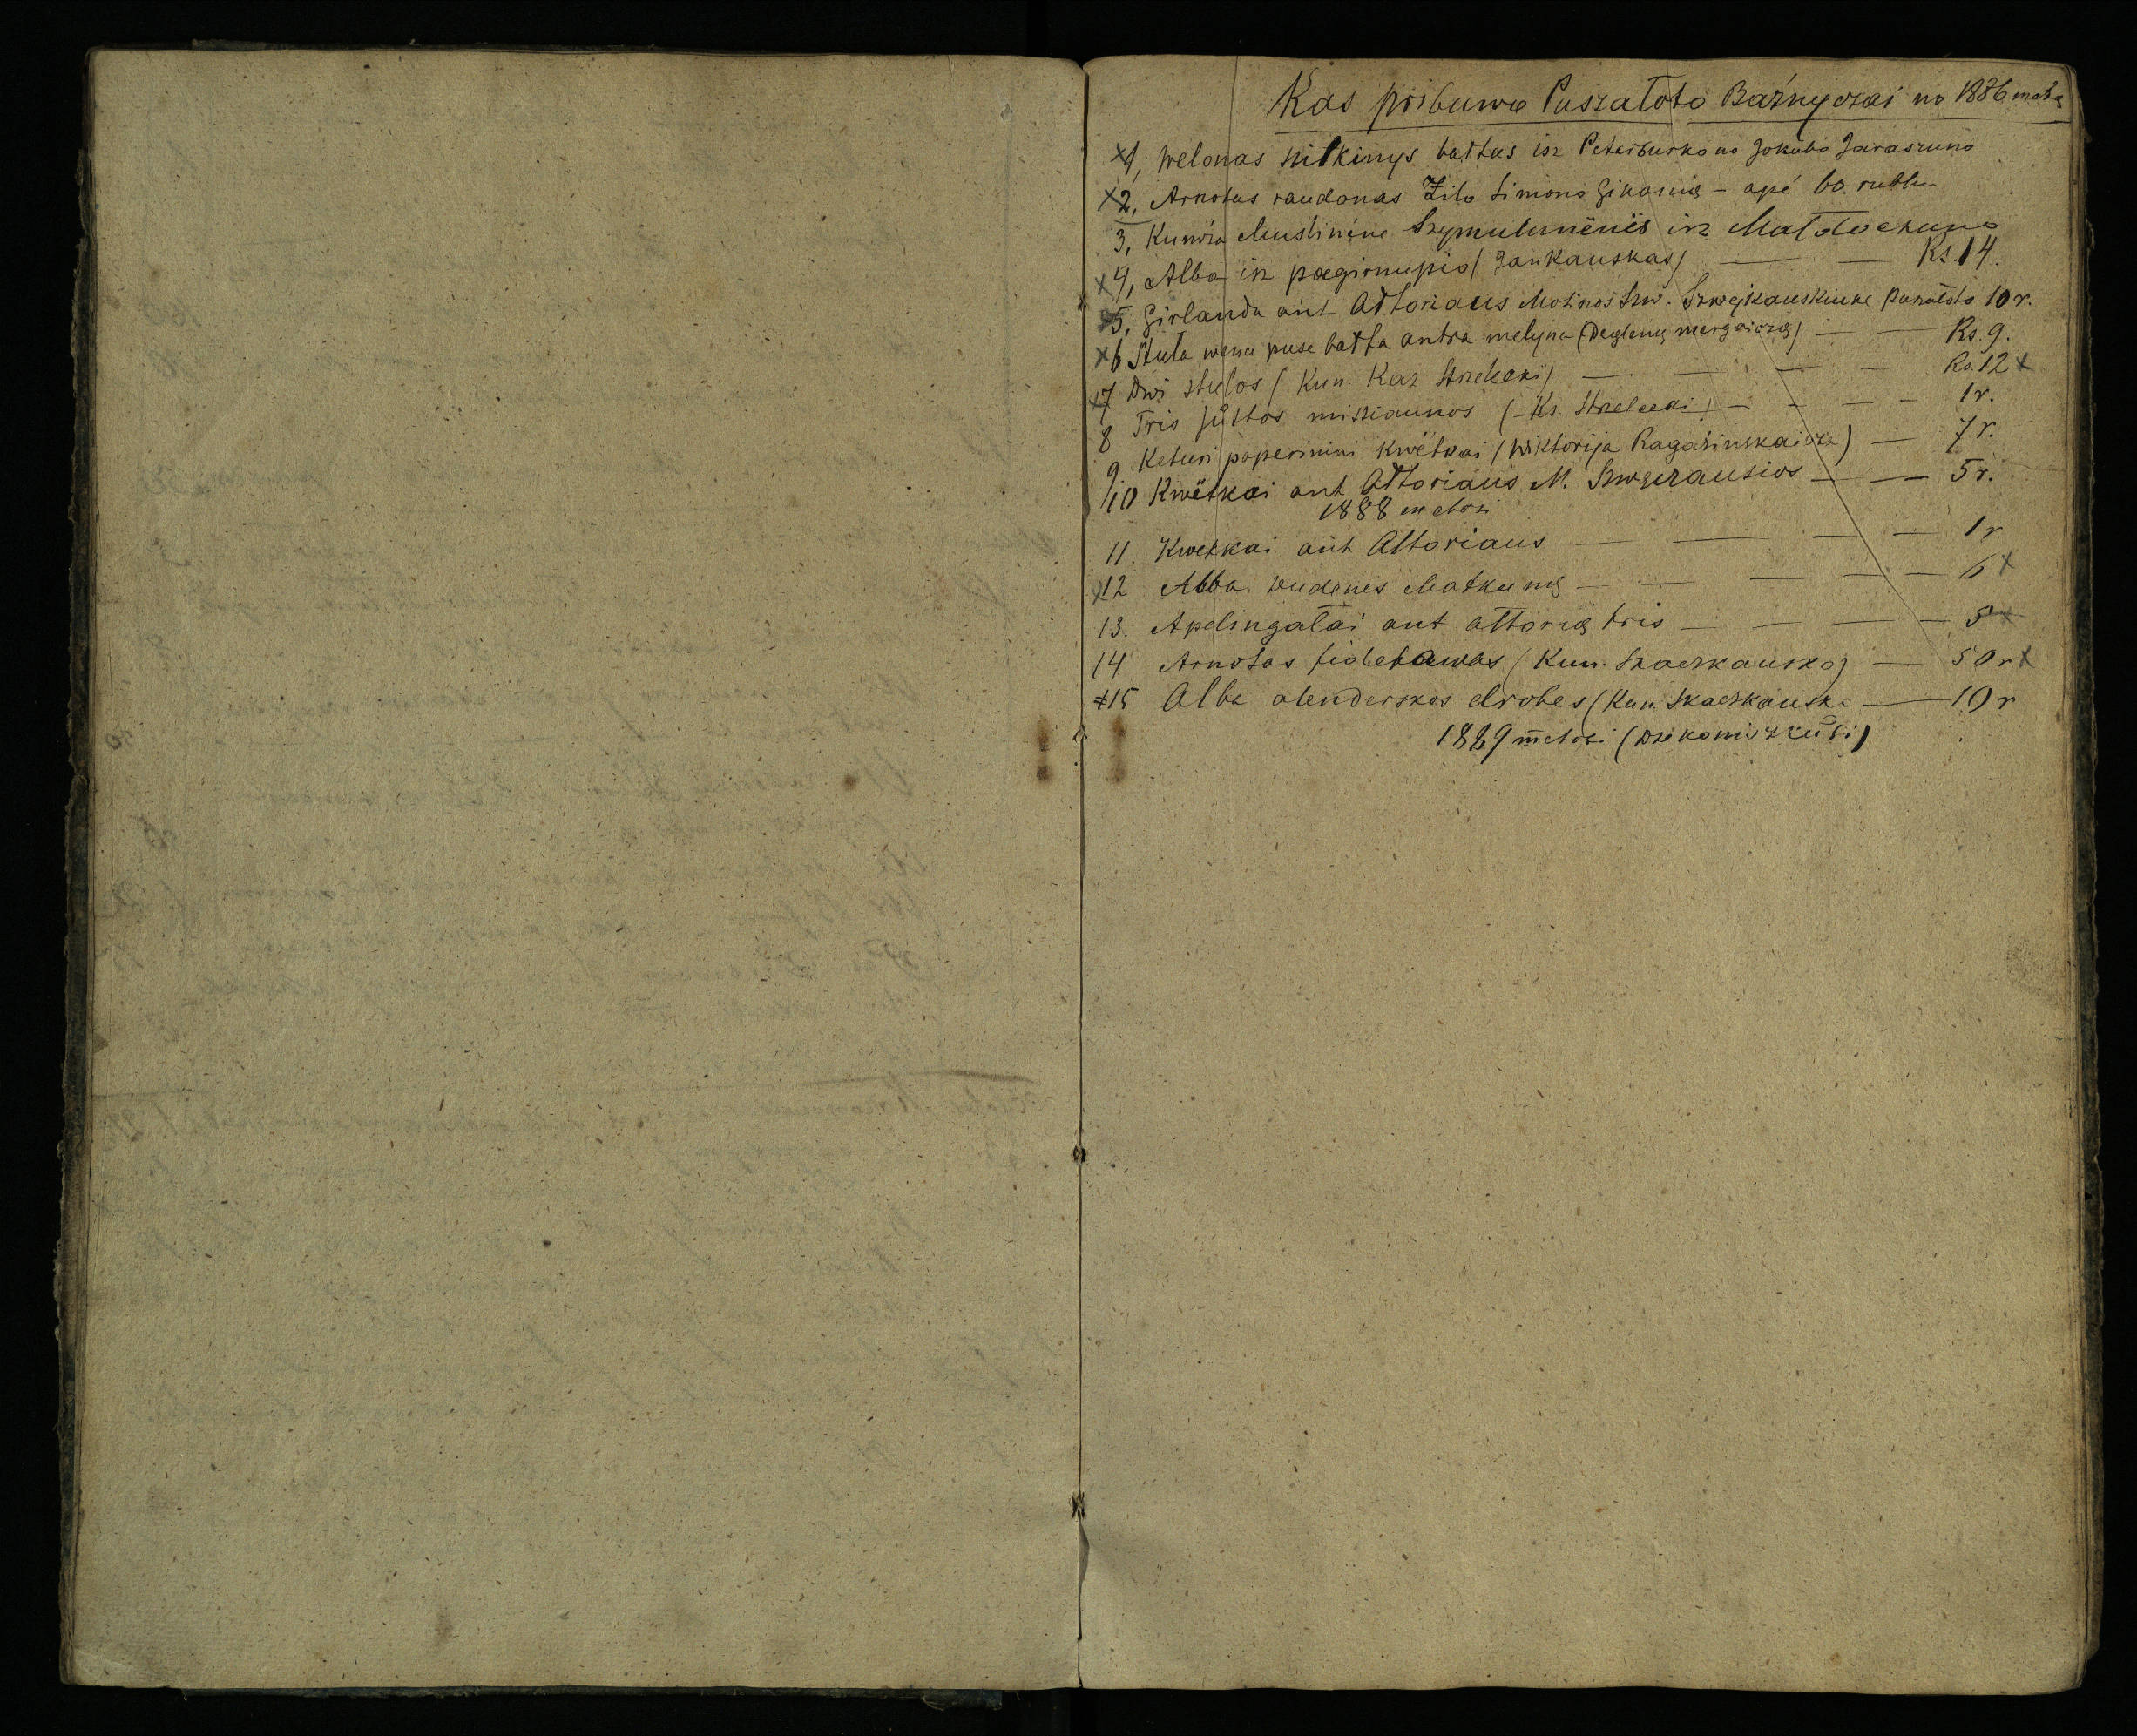 Kas pribuwo Puszałoto Bažnyczai no 1886 metų
x1, Welonas szilkinys bałtas isz Peterburko no Jokubo Jaraszuno
x2, Arnotas raudonas Žilo Simono Gikoniu – apé 60. rublu
3, Kumža Muslinéne Szymulunënës isz Małdochuno
x4, Alba isz pagirnupio (Jankauskas) — — Rs. 14.
x5, Girlanda ant Ałtoriaus Motinos Szw. 10 r.
x6 Stuła wena puse bałta antra melyna (Deglenų mergaiczų) — — Rs. 9.
x7 Dwi stulos (Kun. Kaz Strelecki) — — — — Rs. 12 x
8 Tris jůstos misziaunos (Ks. Strelecki) — — — — 1 r.
9 Keturi poperinini kwëtkai (Wiktorija Ragažinskaicze) — 7 r.
10 Kwëtkai ant Ałtoriaus M. Szwęczausios — — 5 r.
1888 metosi
11. Kwetkai ant Ałtoriaus — — — — 1 r
x12 Alba Matkunų — — — — — 6 x
13. Apelingałai ant ałtorių tris — — — — 5 x
14 Arnotas fioletawas (Kun. Skaczkausko) — 50 r x
x15 Alba olenderskos drobes (Kun. Skaczkausko — 10 r
1889 metosi